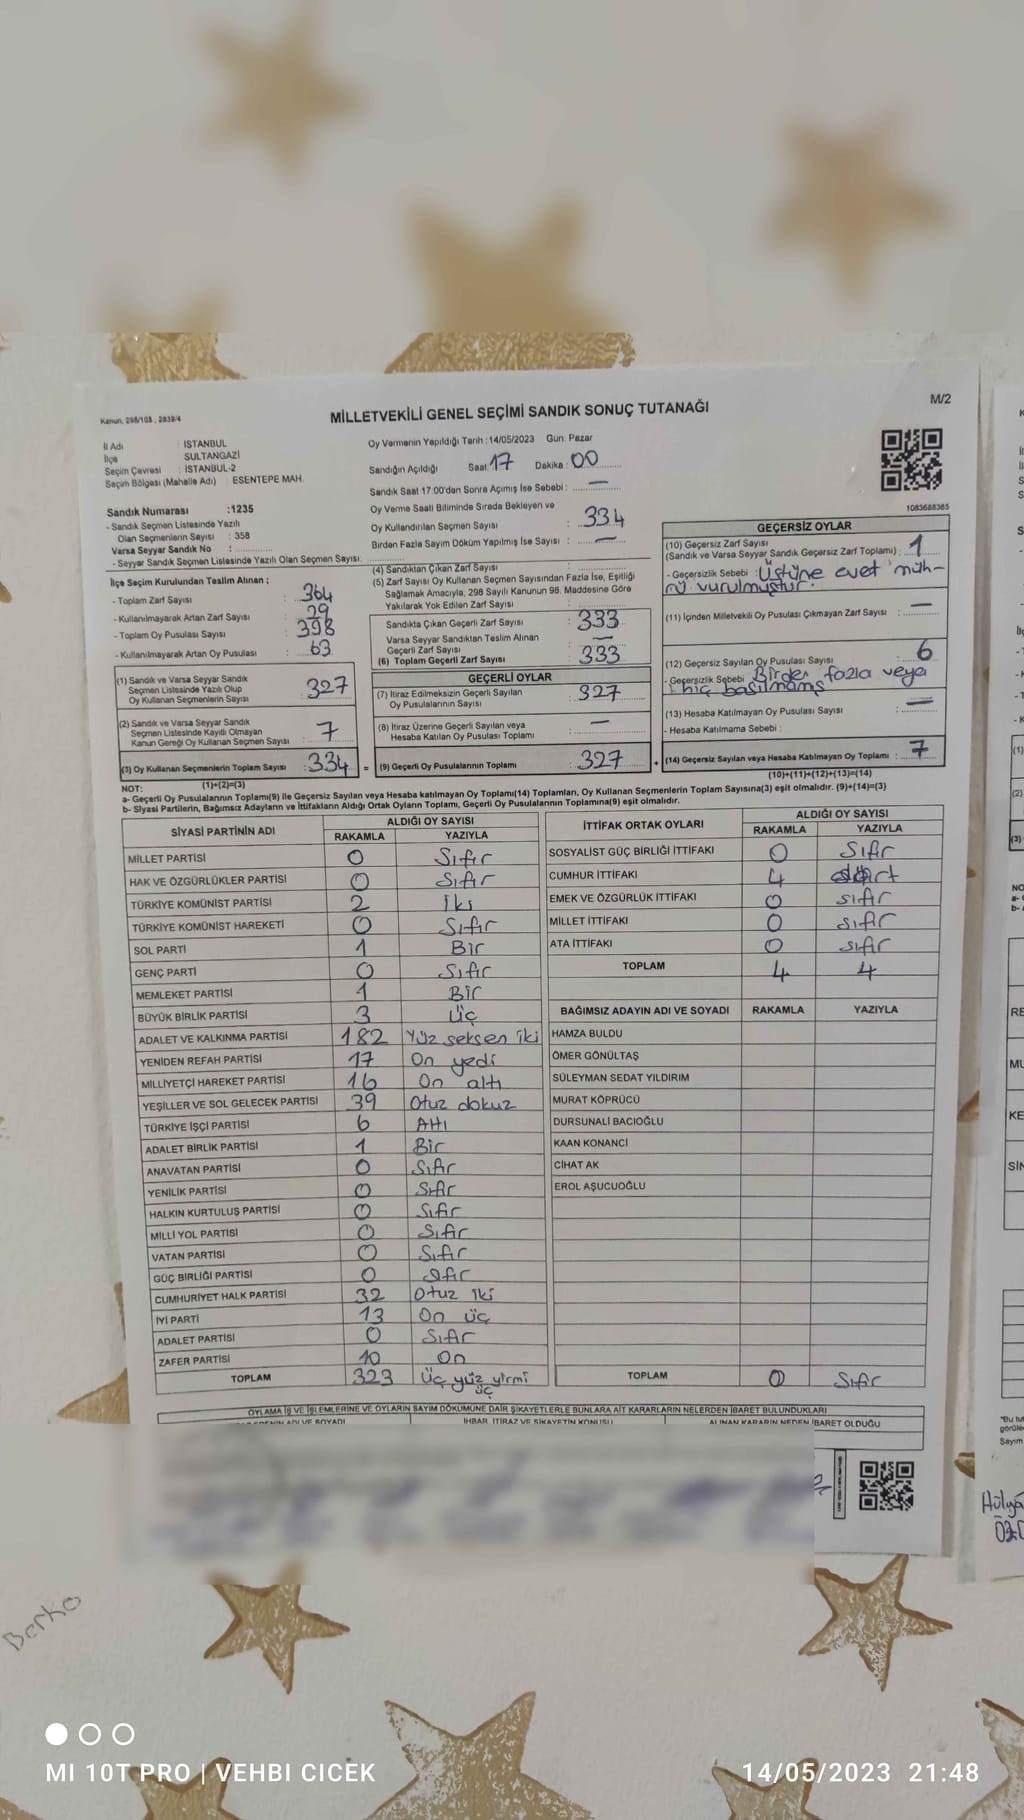 Kanun, 298/105, 2839/4
MİLLETVEKİLİ GENEL SEÇİMİ SANDIK SONUÇ TUTANAĞI
M/2
İl Adı : İSTANBUL
İlçe SULTANGAZİ
Seçim Çevresi : İSTANBUL-2
Seçim Bölgesi (Mahalle Adı) : ESENTEPE MAH.
Oy Vermenin Yapıldığı Tarih : 14/05/2023 Gün: Pazar
Sandığın Açıldığı Saat: 17 Dakika : 00
Sandık Saat 17:00'den Sonra Açımış İse Sebebi : —
Oy Verme Saati Bitiminde Sırada Bekleyen ve
Oy Kullandırılan Seçmen Sayısı : 334
Birden Fazla Sayım Döküm Yapılmış İse Sayısı : —
1083688385
Sandık Numarası :1235
- Sandık Seçmen Listesinde Yazılı
Olan Seçmenlerin Sayısı : 358
Varsa Seyyar Sandık No :
- Seyyar Sandık Seçmen Listesinde Yazılı Olan Seçmen Sayısı:
İlçe Seçim Kurulundan Teslim Alınan ;
- Toplam Zarf Sayısı : 364
- Kullanılmayarak Artan Zarf Sayısı : 29
- Toplam Oy Pusulası Sayısı : 398
- Kullanılmayarak Artan Oy Pusulası : 63
(1) Sandık ve Varsa Seyyar Sandık
Seçmen Listesinde Yazılı Olup
Oy Kullanan Seçmenlerin Sayısı : 327
(2) Sandık ve Varsa Seyyar Sandık
Seçmen Listesinde Kayıtlı Olmayan
Kanun Gereği Oy Kullanan Seçmen Sayısı : 7
(3) Oy Kullanan Seçmenlerin Toplam Sayısı : 334 =
(1)+(2)=(3)
(4) Sandıktan Çıkan Zarf Sayısı :
(5) Zarf Sayısı Oy Kullanan Seçmen Sayısından Fazla İse, Eşitliği
Sağlamak Amacıyla, 298 Sayılı Kanunun 98. Maddesine Göre
Yakılarak Yok Edilen Zarf Sayısı :
Sandıkta Çıkan Geçerli Zarf Sayısı : 333
Varsa Seyyar Sandıktan Teslim Alınan
Geçerli Zarf Sayısı : —
(6) Toplam Geçerli Zarf Sayısı : 333
GEÇERLİ OYLAR
(7) İtiraz Edilmeksizin Geçerli Sayılan
Oy Pusulalarının Sayısı : 327
(8) İtiraz Üzerine Geçerli Sayılan veya
Hesaba Katılan Oy Pusulası Toplamı : —
(9) Geçerli Oy Pusulalarının Toplamı : 327 +
GEÇERSİZ OYLAR
(10) Geçersiz Zarf Sayısı
(Sandık ve Varsa Seyyar Sandık Geçersiz Zarf Toplamı) : 1
- Geçersizlik Sebebi : Üstüne evet müh-
rü vurulmuştur.
(11) İçinden Milletvekili Oy Pusulası Çıkmayan Zarf Sayısı : —
(12) Geçersiz Sayılan Oy Pusulası Sayısı : 6
- Geçersizlik Sebebi Birden fazla veya
hiç basılmamş
(13) Hesaba Katılmayan Oy Pusulası Sayısı : —
- Hesaba Katılmama Sebebi :
(14) Geçersiz Sayılan veya Hesaba Katılmayan Oy Toplamı : 7
(10)+(11)+(12)+(13)=(14)
NOT:
a- Geçerli Oy Pusulalarının Toplamı(9) ile Geçersiz Sayılan veya Hesaba katılmayan Oy Toplamı(14) Toplamları, Oy Kullanan Seçmenlerin Toplam Sayısına(3) eşit olmalıdır. (9)+(14)=(3)
b- Siyasi Partilerin, Bağımsız Adayların ve İttifakların Aldığı Ortak Oyların Toplamı, Geçerli Oy Pusulalarının Toplamına(9) eşit olmalıdır.
SİYASİ PARTİNİN ADI ALDIĞI OY SAYISI
RAKAMLA YAZIYLA
MİLLET PARTİSİ 0 Sıfır
HAK VE ÖZGÜRLÜKLER PARTİSİ 0 Sıfır
TÜRKİYE KOMÜNİST PARTİSİ 2 İki
TÜRKİYE KOMÜNİST HAREKETİ 0 Sıfır
SOL PARTİ 1 Bir
GENÇ PARTİ 0 Sıfır
MEMLEKET PARTİSİ 1 Bir
BÜYÜK BİRLİK PARTİSİ 3 Üç
ADALET VE KALKINMA PARTİSİ 182 Yüz seksen iki
YENİDEN REFAH PARTİSİ 17 On yedi
MİLLİYETÇİ HAREKET PARTİSİ 16 On altı
YEŞİLLER VE SOL GELECEK PARTİSİ 39 Otuz dokuz
TÜRKİYE İŞÇİ PARTİSİ 6 Altı
ADALET BİRLİK PARTİSİ 1 Bir
ANAVATAN PARTİSİ 0 Sıfır
YENİLİK PARTİSİ 0 Sıfır
HALKIN KURTULUŞ PARTİSİ 0 Sıfır
MİLLİ YOL PARTİSİ 0 Sıfır
VATAN PARTİSİ 0 Sıfır
GÜÇ BİRLİĞİ PARTİSİ 0 Sıfır
CUMHURİYET HALK PARTİSİ 32 Otuz iki
İYİ PARTİ 13 On üç
ADALET PARTİSİ 0 Sıfır
ZAFER PARTİSİ 10 On
TOPLAM 323 Üç yüz yirmi
üç
İTTİFAK ORTAK OYLARI ALDIĞI OY SAYISI
RAKAMLA YAZIYLA
SOSYALİST GÜÇ BİRLİĞİ İTTİFAKI 0 Sıfır
CUMHUR İTTİFAKI 4 dört
EMEK VE ÖZGÜRLÜK İTTİFAKI 0 sıfır
MİLLET İTTİFAKI 0 sıfır
ATA İTTİFAKI 0 sıfır
TOPLAM 4 4
BAĞIMSIZ ADAYIN ADI VE SOYADI RAKAMLA YAZIYLA
HAMZA BULDU
ÖMER GÖNÜLTAŞ
SÜLEYMAN SEDAT YILDIRIM
MURAT KÖPRÜCÜ
DURSUNALİ BACIOĞLU
KAAN KONANCİ
CİHAT AK
EROL AŞUCUOĞLU
TOPLAM 0 Sıfır
OYLAMA İŞ VE İŞLEMLERİNE VE OYLARIN SAYIM DÖKÜMÜNE DAİR ŞİKAYETLERLE BUNLARA AİT KARARLARIN NELERDEN İBARET BULUNDUKLARI
İHBAR, İTİRAZ VE ŞİKAYETİN KONUSU ALINAN KARARIN NEDEN İBARET OLDUĞU
Hülya
Berka
MI 10T PRO | VEHBI CICEK
14/05/2023 21:48